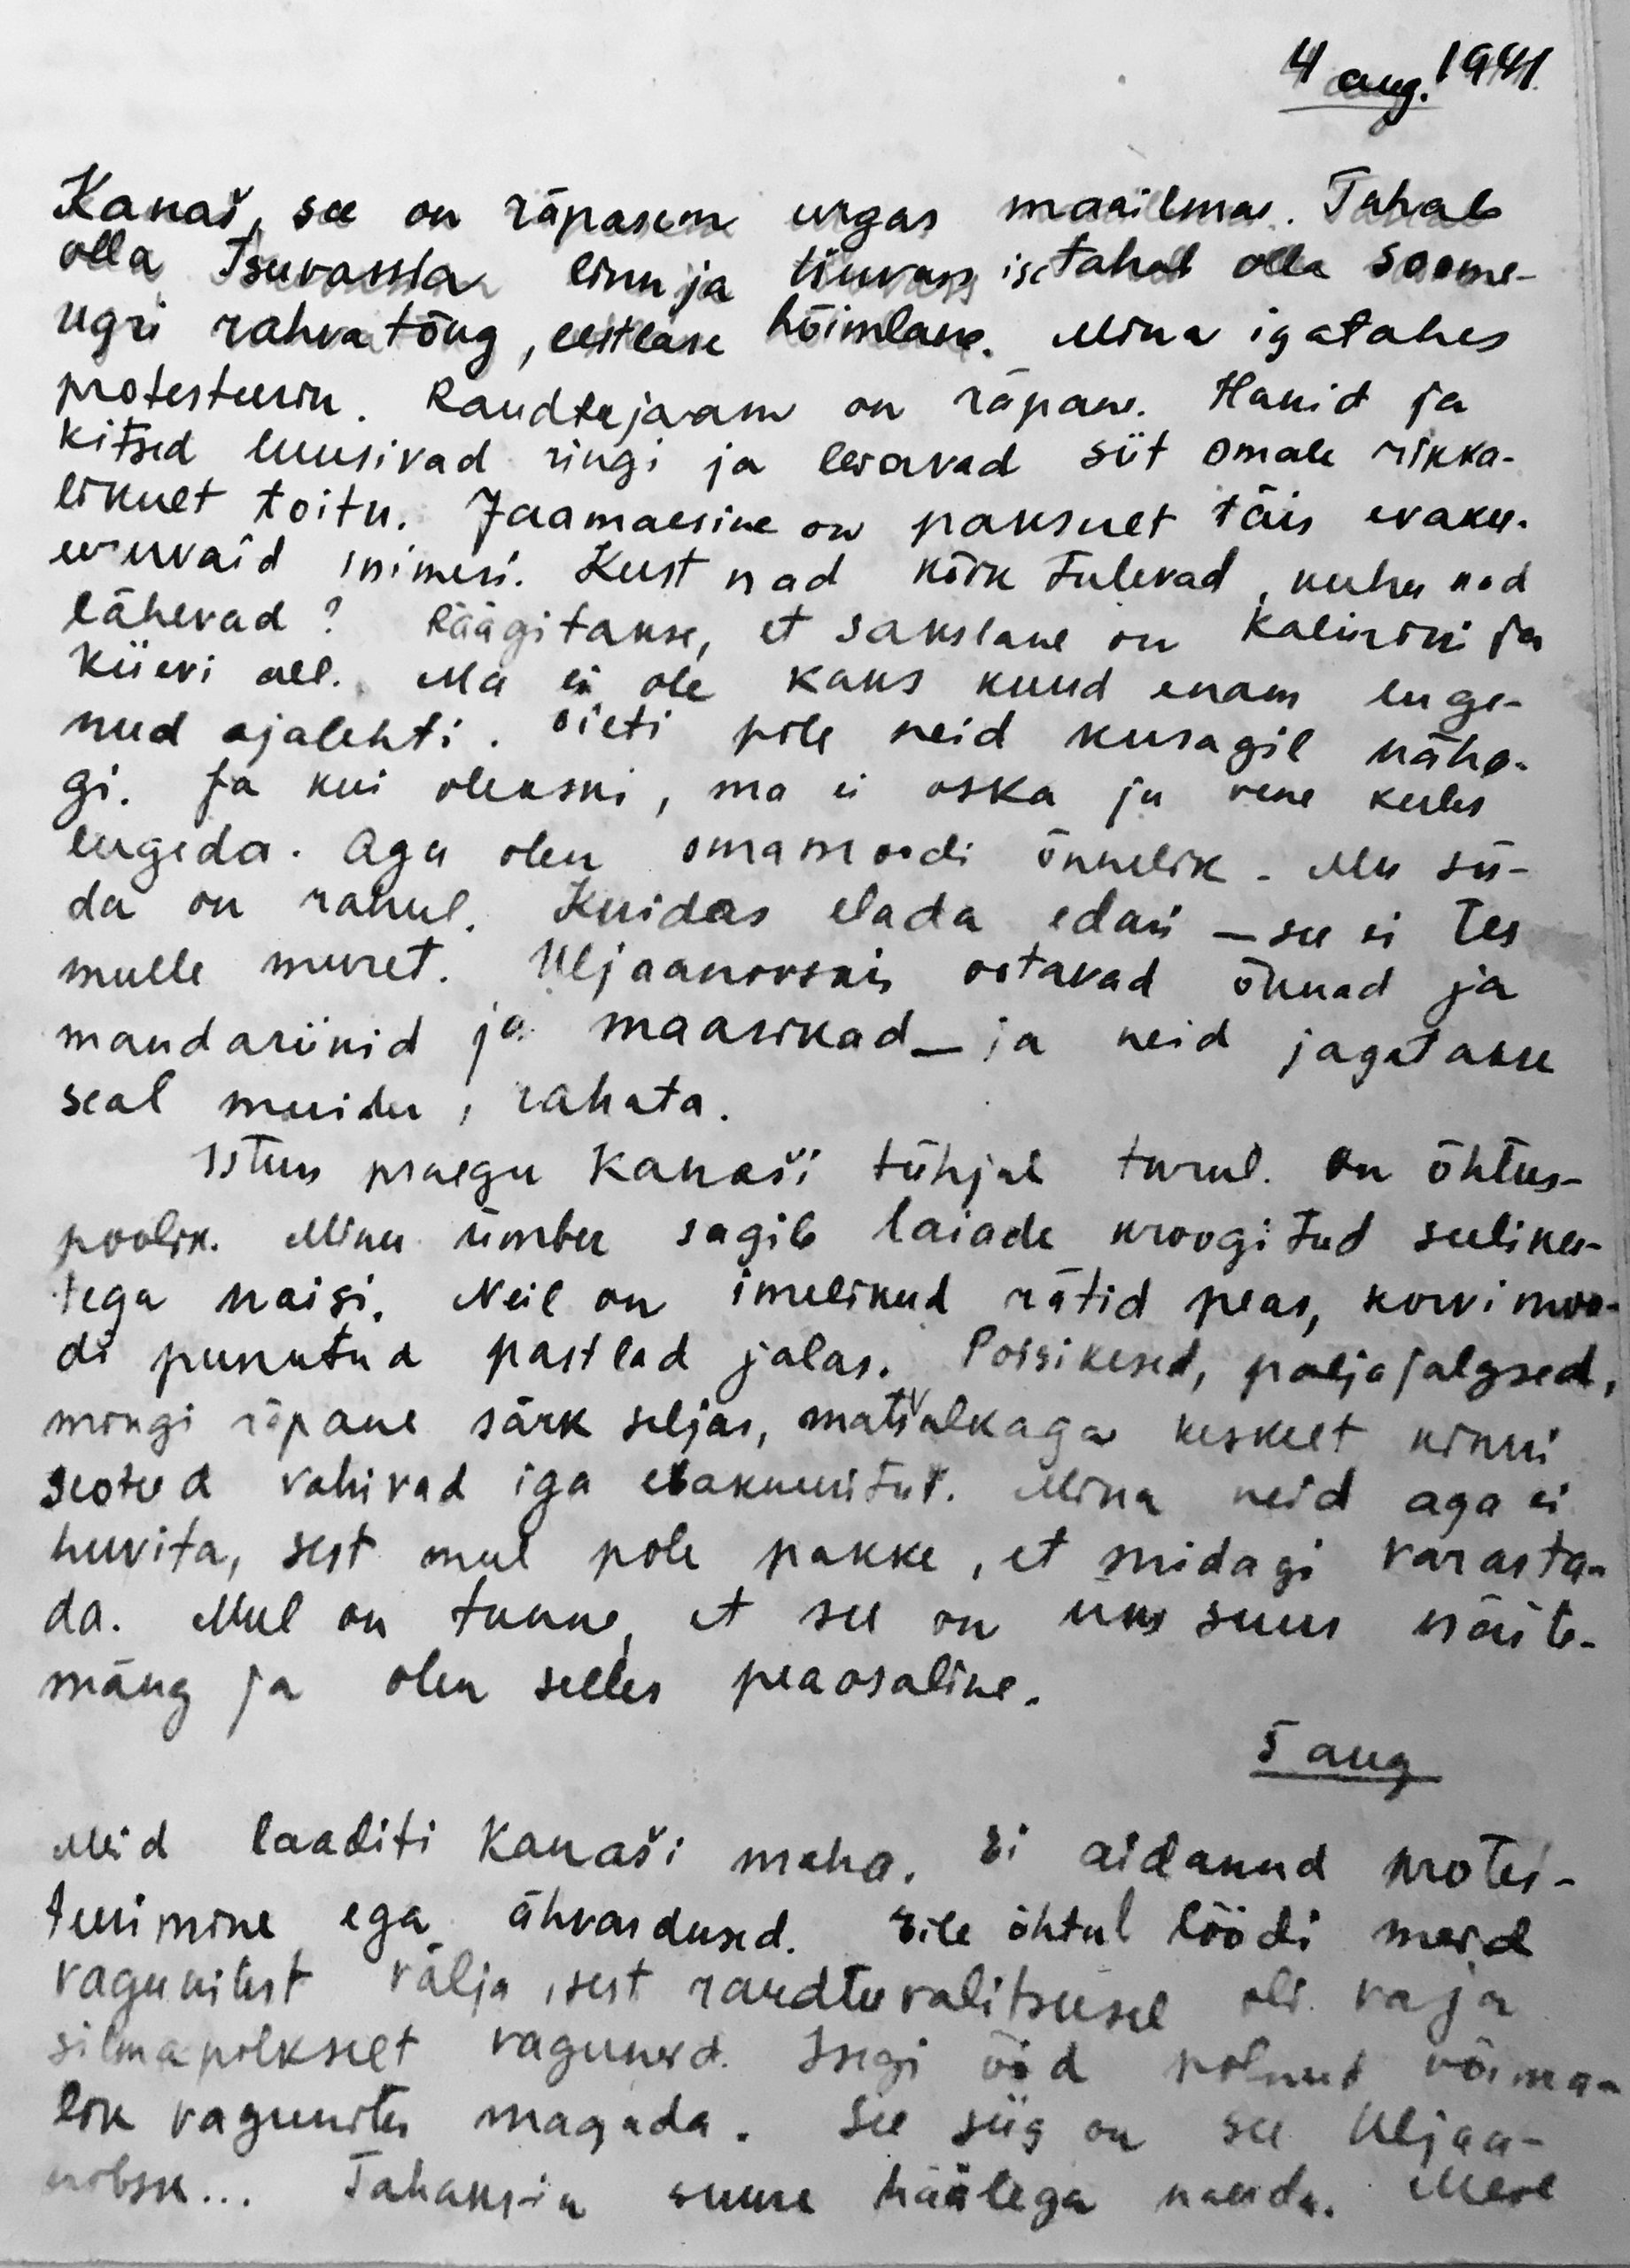 4 aug. 1941.
Kanaš, see on räpasem urgas maailmas. Tahab
olla Tsuvassia linn ja tšuvass ise tahab olla soome-
ugri rahvatõug, eestlase hõimlane. Mina igatahes
protesteerin. Raudteejaam on räpane. Hanid ja
kitsed luusivad ringi ja leiavad siit omale rikka-
likult toitu. Jaamaesine on paksult täis evaku-
eeruvaid inimesi. Kust nad kõik tulevad, kuhu nad
lähevad? Räägitakse, et sakslane on Kalinini ja
Kiievi all. Ma ei ole kaks kuud enam luge-
nud ajalehti. Õieti pole neid kusagil näha-
gi. Ja kui olekski, ma ei oska ju vene keeles
lugeda. Aga olen omamoodi õnnelik. Mu sü-
da on rahul. Kuidas elada edasi – see ei tee
mulle muret. Uljaanovskis ootavad õunad ja
mandariinid ja maasikad – ja neid jagatakse
seal muidu, rahata.
Istun praegu Kanaši tühjal turul. On õhtus-
poolik. Minu ümber sagib laiade kroogitud seeliku-
tega naisi. Neil on imelikud rätid peas, korvimoo-
di punutud pastlad jalas. Poisikesed, paljajalgsed,
mingi räpane särk seljas, matšalkaga keskelt kinni
seotud vahivad iga evakueeritut. Mina neid aga ei
huvita, sest mul pole pakke, et midagi varasta-
da. Mul on tunne, et see on üks suur näite-
mäng ja olen selles peaosaline.
5 aug
Meid laaditi Kanaši maha. Ei aidanud protes-
teerimine ega ähvardused. Eile õhtul löödi meid
vagunitest välja, sest raudteevalitsusel oli vaja
silmapilkselt vaguneid. Isegi ööd polnud võima-
lik vagunites magada. See siis on see Uljaa-
novsk... Tahaksin suure häälega naerda. Meie